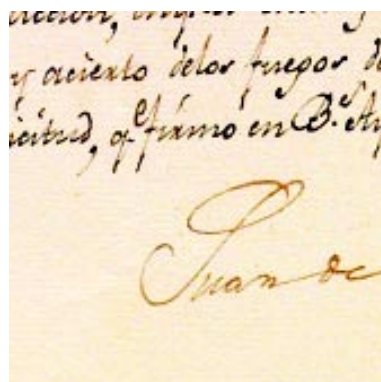 y acierto delos fuegos
icitud, q.e firmó en B.s Ay
Juan de